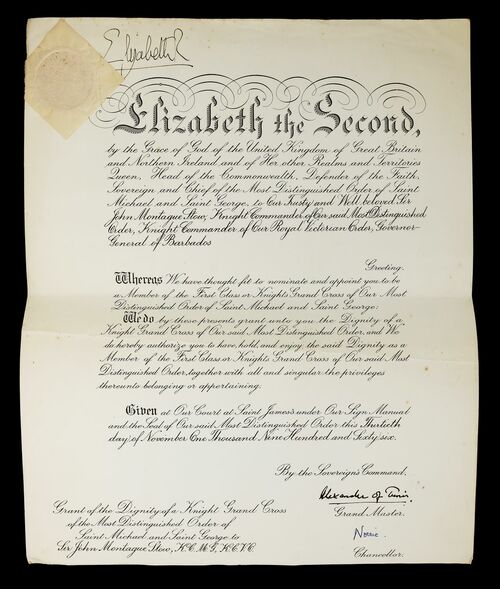 Elizabeth R
Elizabeth the Second,
by the Grace of God of the United Kingdom of Great Britain
and Northern Ireland and of Her other Realms and Territories
Queen, Head of the Commonwealth, Defender of the Faith,
Sovereign and Chief of the Most Distinguished Order of Saint
Michael and Saint George, to Our Trusty and Well beloved Sir
John Montague Stow, Knight Commander of Our said Most Distinguished
Order, Knight Commander of Our Royal Victorian Order, Governor-
General of Barbados
Greeting.
Whereas We have thought fit to nominate and appoint you to be
a Member of the First Class or Knights Grand Cross of Our Most
Distinguished Order of Saint Michael and Saint George:
We do by these presents grant unto you the Dignity of a
Knight Grand Cross of Our said Most Distinguished Order, and We
do hereby authorize you to have, hold, and enjoy the said Dignity as a
Member of the First Class or Knights Grand Cross of Our said Most
Distinguished Order, together with all and singular the privileges
thereunto belonging or appertaining.
Given at Our Court at Saint James's under Our Sign Manual
and the Seal of Our said Most Distinguished Order this Thirtieth
day of November One Thousand Nine Hundred and Sixty six.
By the Sovereign's Command,
Alexander of Tunis.
Grand Master.
Grant of the Dignity of a Knight Grand Cross
of the Most Distinguished Order of
Saint Michael and Saint George to
Sir John Montague Stow, K.C.M.G., K.C.V.O.
Chancellor.